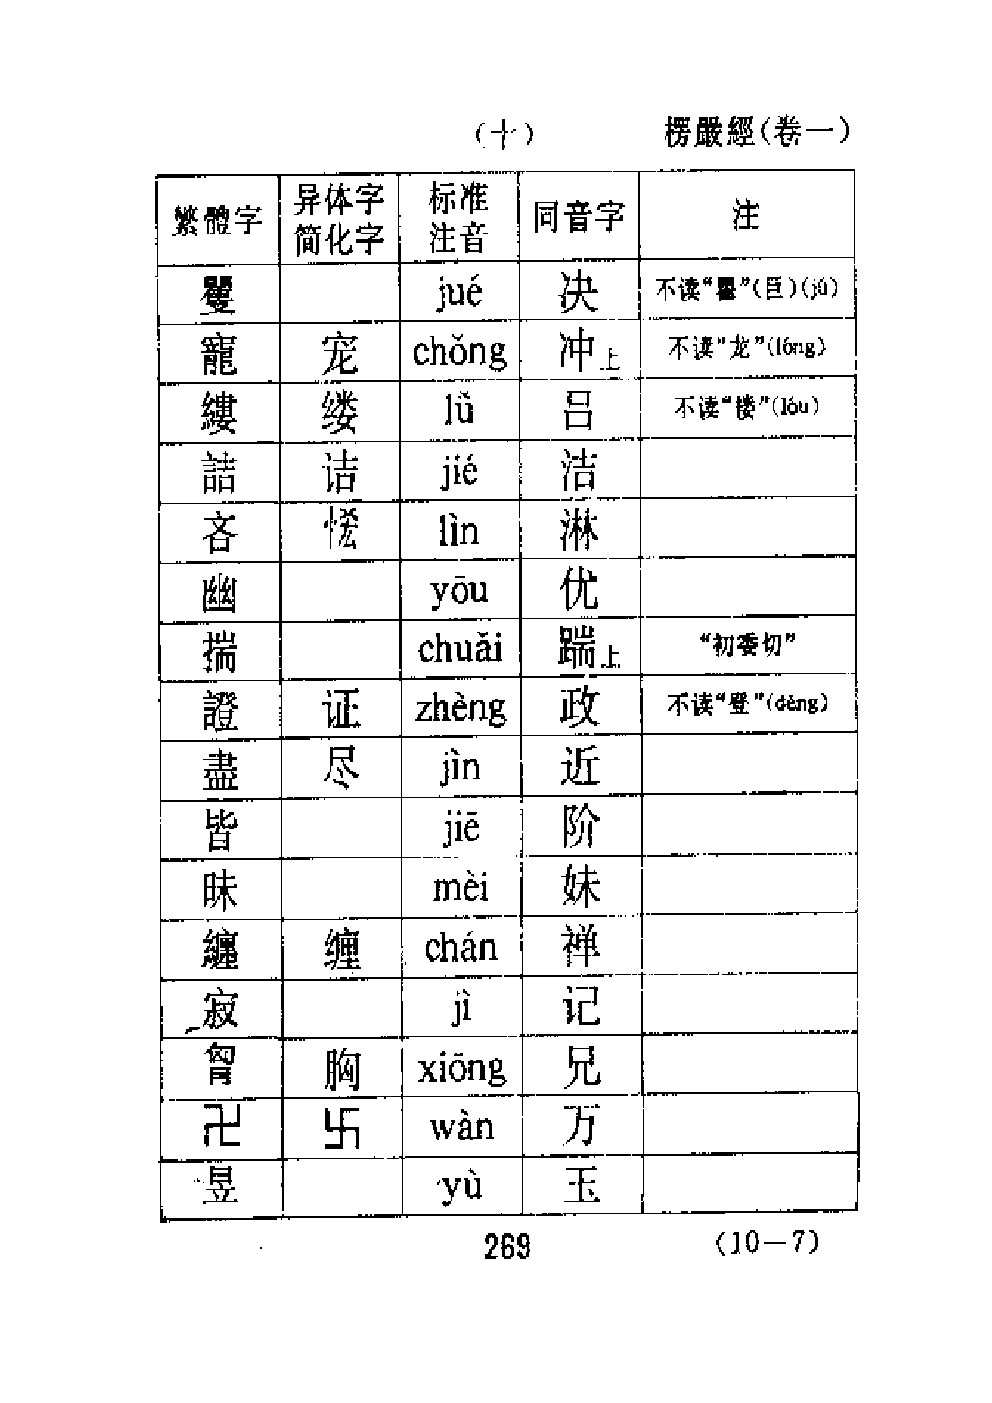 (十) 楞嚴經(卷一)
繁體字 异体字简化字 标准注音 同音字 注
矍 jué 决 不读“瞿”(巨)(jù)
寵 宠 chǒng 冲上 不读“龙”(lóng)
縷 缕 lǚ 吕 不读“楼”(lóu)
詰 诘 jié 洁
吝 lìn 淋
幽 yōu 优
揣 chuǎi 踹上 “初委切”
證 证 zhèng 政 不读“登”(dèng)
盡 尽 jìn 近
皆 jiē 阶
昧 mèi 妹
纏 缠 chán 禅
寂 jì 记
胷 胸 xiōng 兄
卍 卐 wàn 万
昱 yù 玉
269 (10-7)